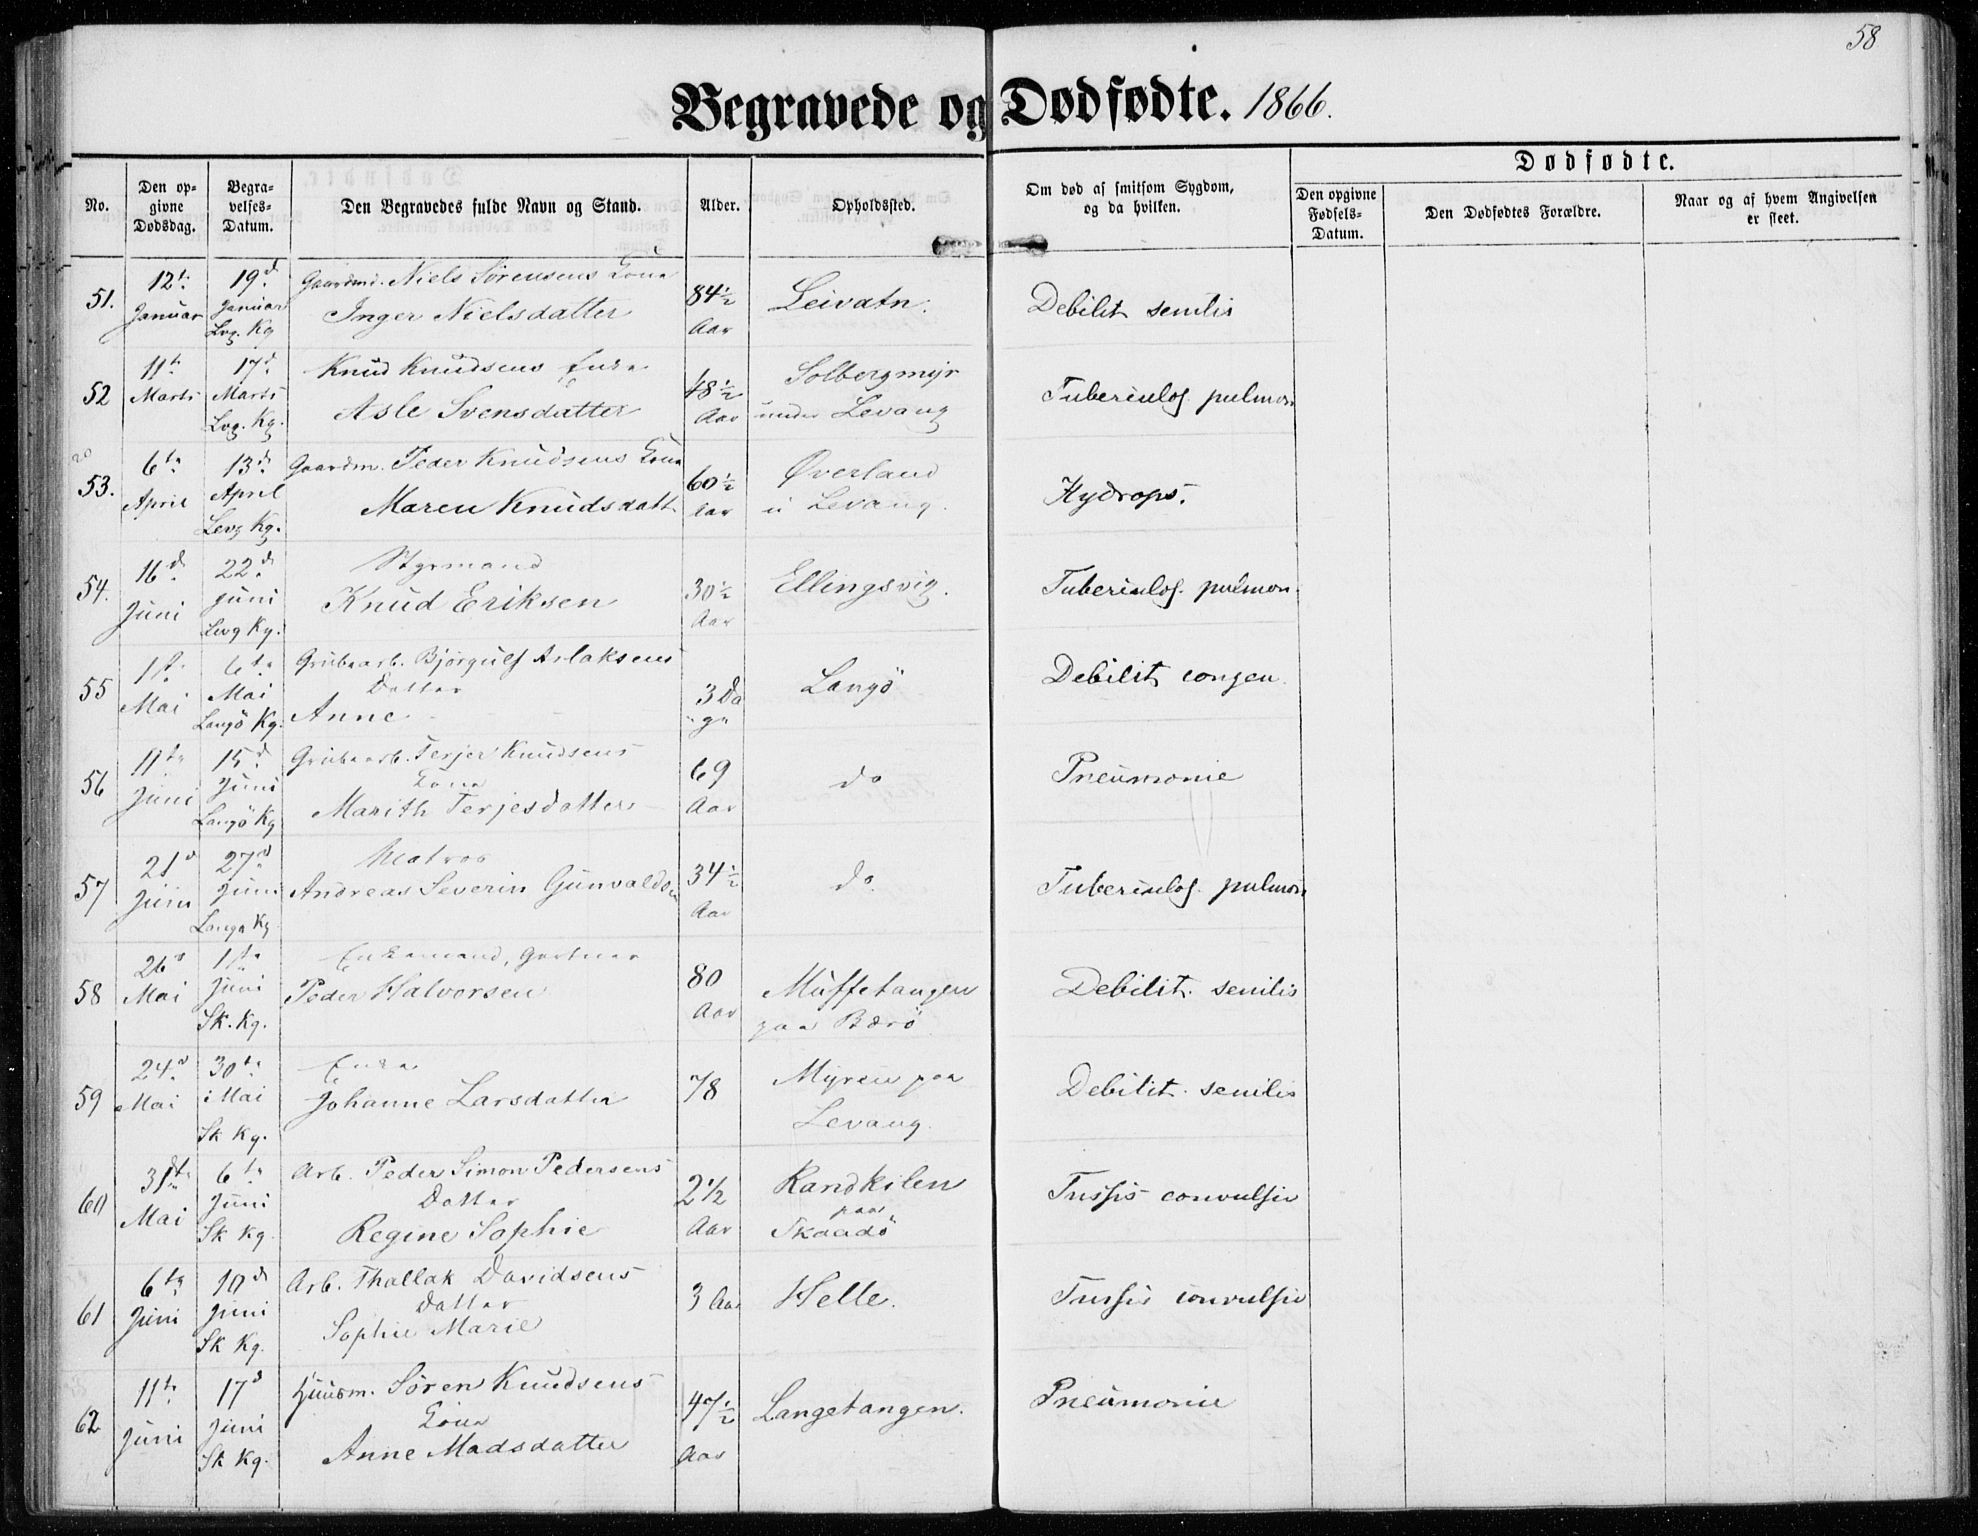 58
Begravede og Dødfødte. 1866.
No.
Den op-
givne
Dødsdag.
Begra-
velses-
Datum.
Den Begravedes fulde Navn og Stand.
Alder.
Opholdssted.
Om død af smitsom Sygdom,
og da hvilken.
Dødfødte.
Den opgivne
Fødsels-
Datum.
Den Dødfødtes Forældre.
Naar og af hvem Angivelsen
er skeet.
51. 12te 19d Gaardmd. Niels Sørensens Kone 84½ Leivatn. Debilit senilis
Januar Januar Inger Nielsdatter Aar
Lvg. Kg
52 11te 17d Knud Knudsens Enke 48½ Solbergmyr Tuberculos. pulmon
Marts Marts Asle Svensdatter Aar under Levang
Lvg. Kg.
53. 6te 13d Gaardm. Peder Knudsens Kone 60½ Øverland Hydrops.
April April Maren Knudsdatt Aar i Levang.
Levg Kg.
54. 16d 22d Styrmand 30½ Ellingsvig. Tuberculos. pulmon.
Juni Juni Knud Eriksen Aar
Levg Kg.
55 1ste 6te Grubearb. Bjørgulf Aslaksens 3 Da Langö Debilit congen.
Mai Mai Datter ge
Langö Kg. Anne
56 11te 15d Grubearb. Terjer Knudsens 69 do Pneumonie
Juni Juni Kone Aar
Langö Kg Marith Terjesdatter
57 21d 27d Matros 34½ do. Tuberculos. pulmon
Juni Juni Andreas Severin Gunvaldsen Aar
Langø Kg
58 26d 1ste Enkemand, Gartner 80 Muffetangen Debilit. senilis
Mai Juni Peder Halvorsen Aar paa Bærö
Sk. Kg.
59 24d 30te Enke 78 Myren paa Debilit. senilis
Mai Mai Johanne Larsdatter Levang.
Sk Kg.
60 31te 6te Arb. Peder Simon Pedersens 2½ Randkilen Tussis convulsiv
Mai Juni Datter Aar paa
Sk Kg Regine Sophie Skaadö
61 6te 10d Arb. Thallak Davidsens 3 Aar Helle. Tussis convulsiv
Juni Juni Datter
Sk Kg. Sophie Marie
62 11te 17d Huusm. Sören Knudsens 47½ Langetangen. Pneumonie
Juni Juni Kone Aar
Sk Kg. Anne Madsdatter